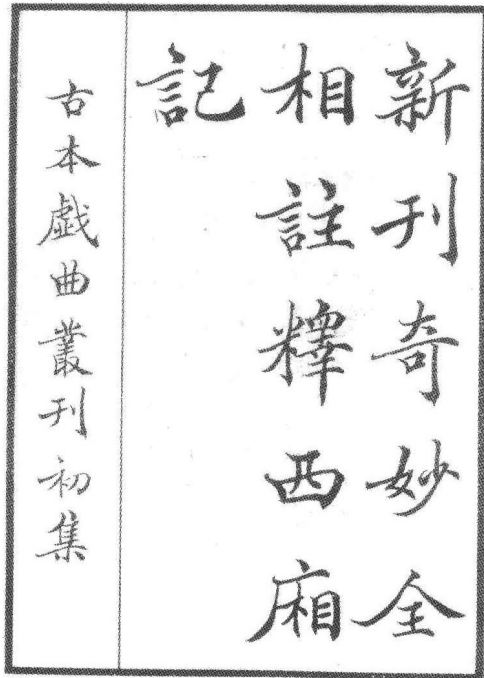 新刊奇妙全
相註釋西廂
記
古本戯曲叢刊初集